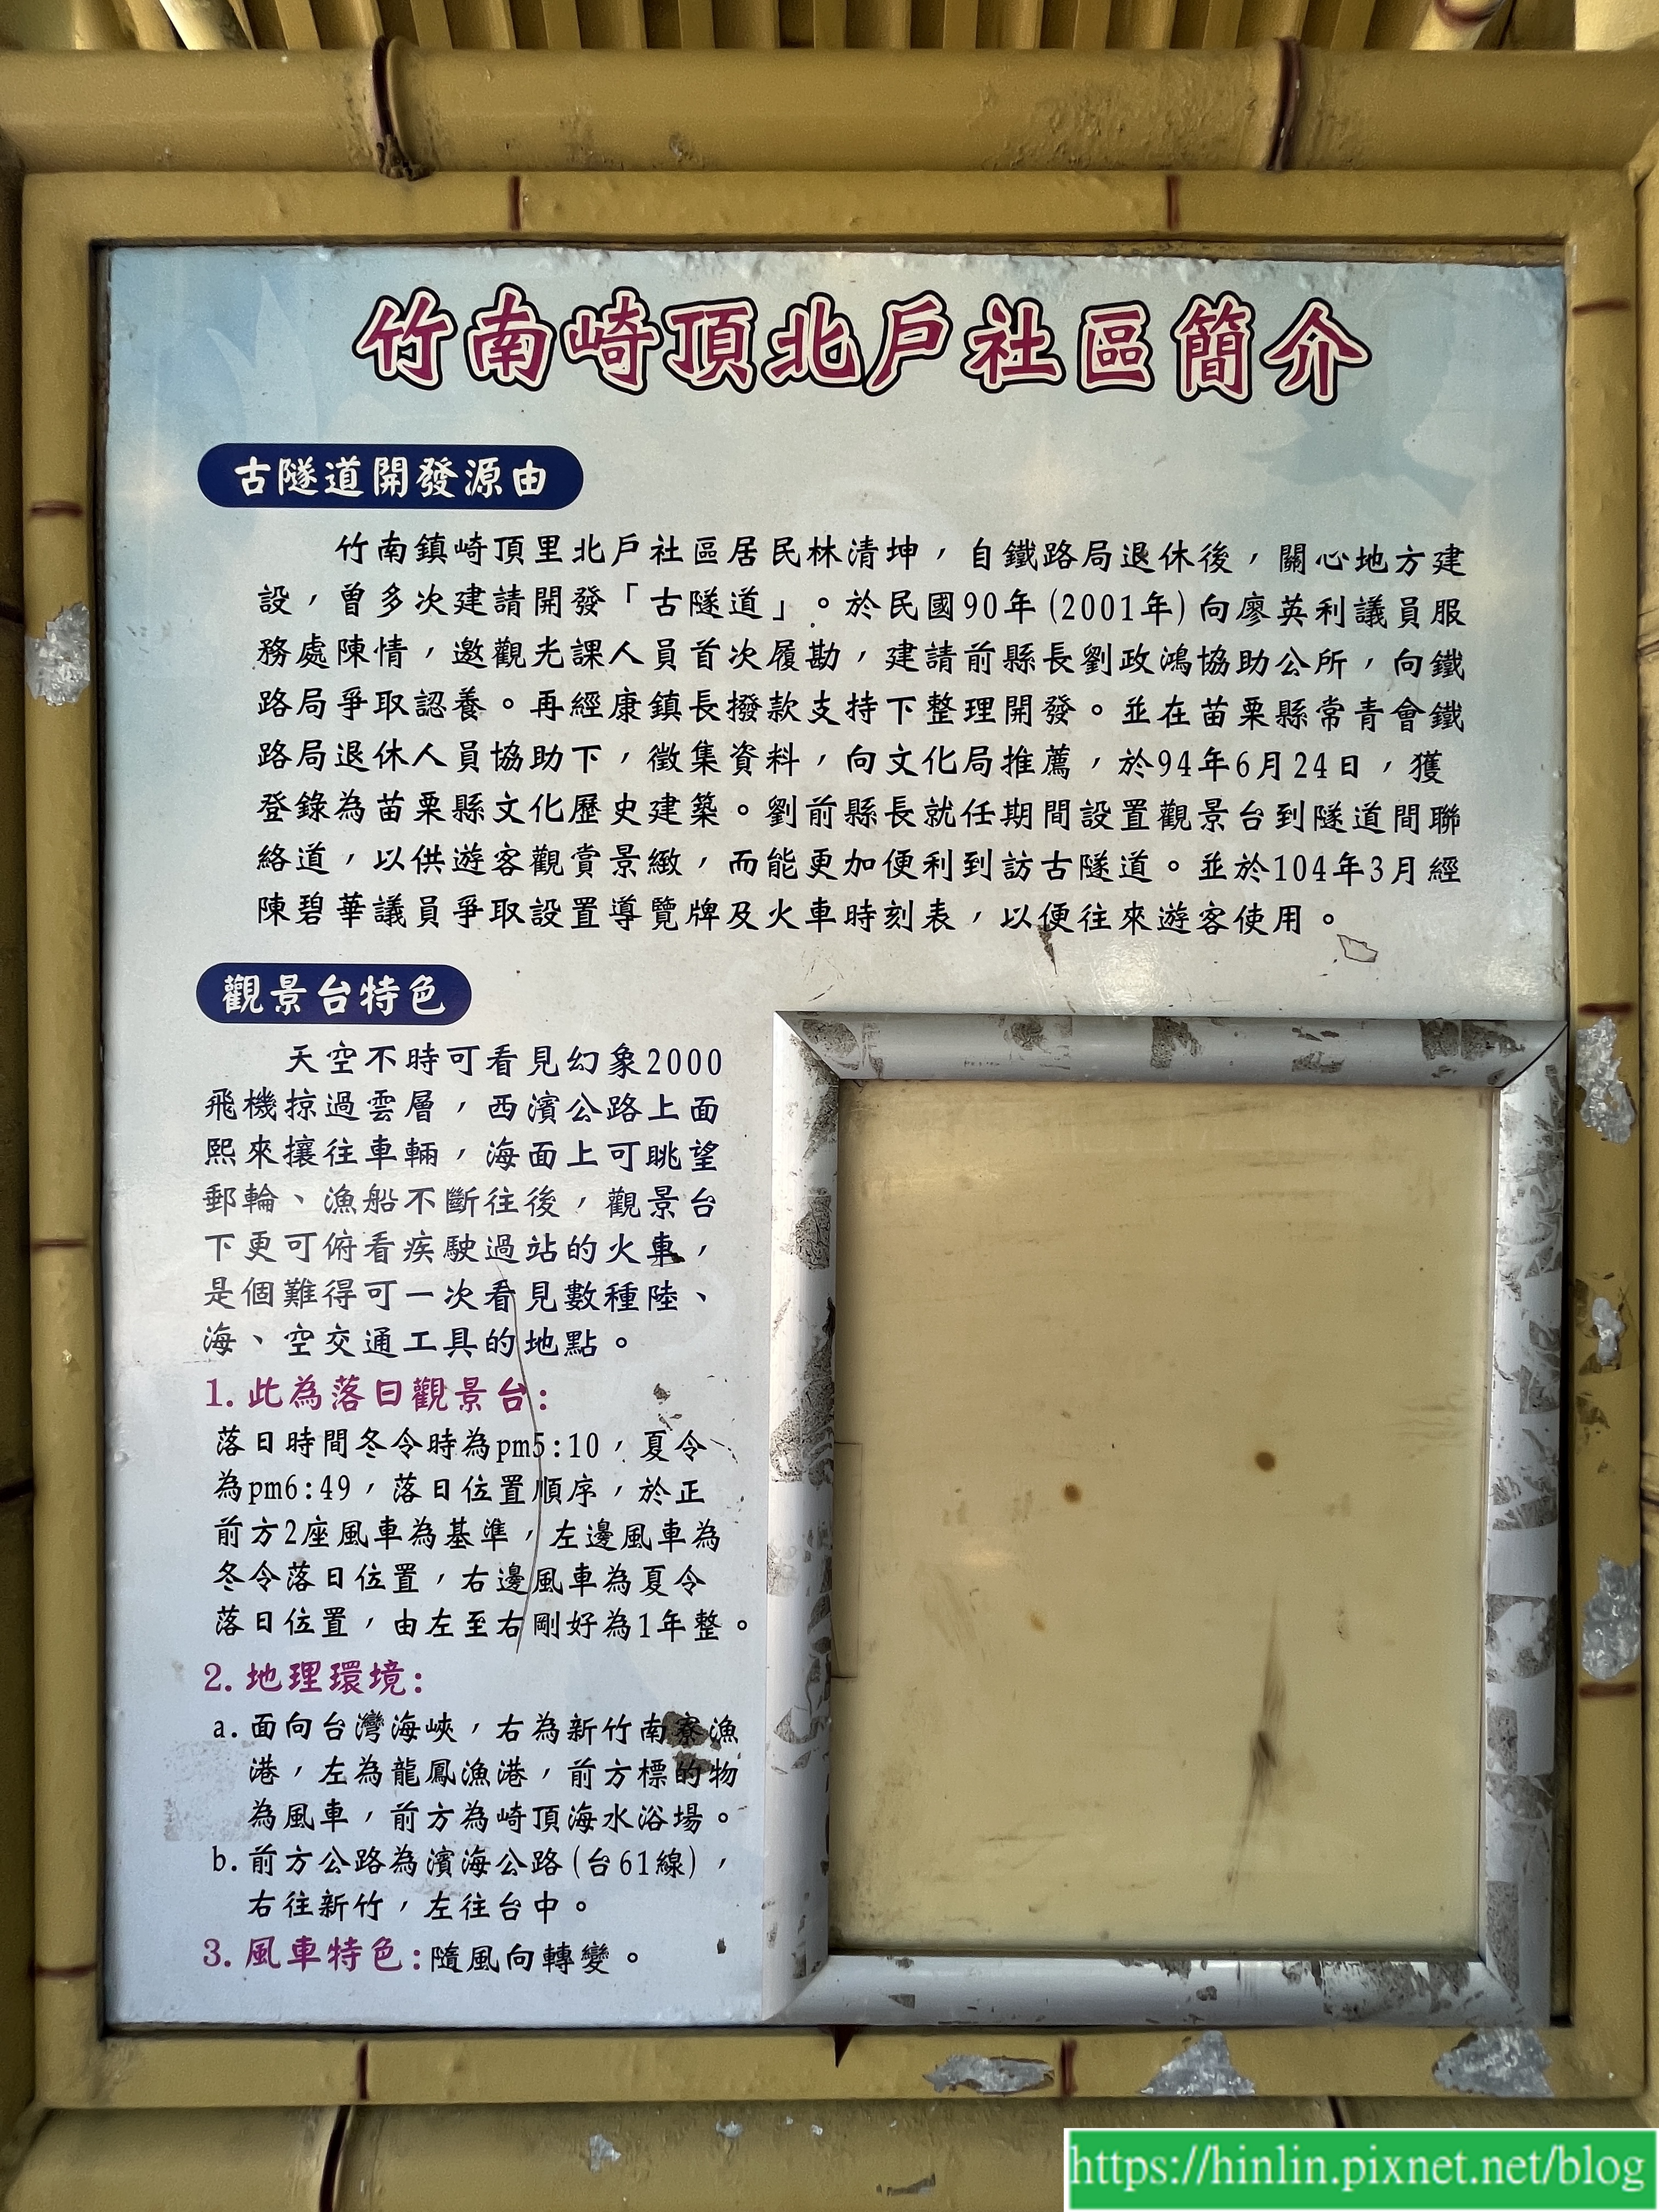 竹南崎頂北戶社區簡介
古隧道開發源由
竹南鎮崎頂里北戶社區居民林清坤，自鐵路局退休後，關心地方建
設，曾多次建請開發「古隧道」。於民國90年(2001年)向廖英利議員服
務處陳情，邀觀光課人員首次履勘，建請前縣長劉政鴻協助公所，向鐵
路局爭取認養。再經康鎮長撥款支持下整理開發。並在苗栗縣常青會鐵
路局退休人員協助下，徵集資料，向文化局推薦，於94年6月24日，獲
登錄為苗栗縣文化歷史建築。劉前縣長就任期間設置觀景台到隧道間聯
絡道，以供遊客觀賞景緻，而能更加便利到訪古隧道。並於104年3月經
陳碧華議員爭取設置導覽牌及火車時刻表，以便往來遊客使用。
觀景台特色
天空不時可看見幻象2000
飛機掠過雲層，西濱公路上面
熙來攘往車輛，海面上可眺望
郵輪、漁船不斷往後，觀景台
下更可俯看疾駛過站的火車，
是個難得可一次看見數種陸、
海、空交通工具的地點。
1.此為落日觀景台:
落日時間冬令時為pm5:10，夏令
為pm6:49，落日位置順序，於正
前方2座風車為基準，左邊風車為
冬令落日位置，右邊風車為夏令
落日位置，由左至右剛好為1年整。
2.地理環境:
a.面向台灣海峽，右為新竹南寮漁
港，左為龍鳳漁港，前方標的物
為風車，前方為崎頂海水浴場。
b.前方公路為濱海公路(台61線)，
右往新竹，左往台中。
3.風車特色:隨風向轉變。
https://hinlin.pixnet.net/blog